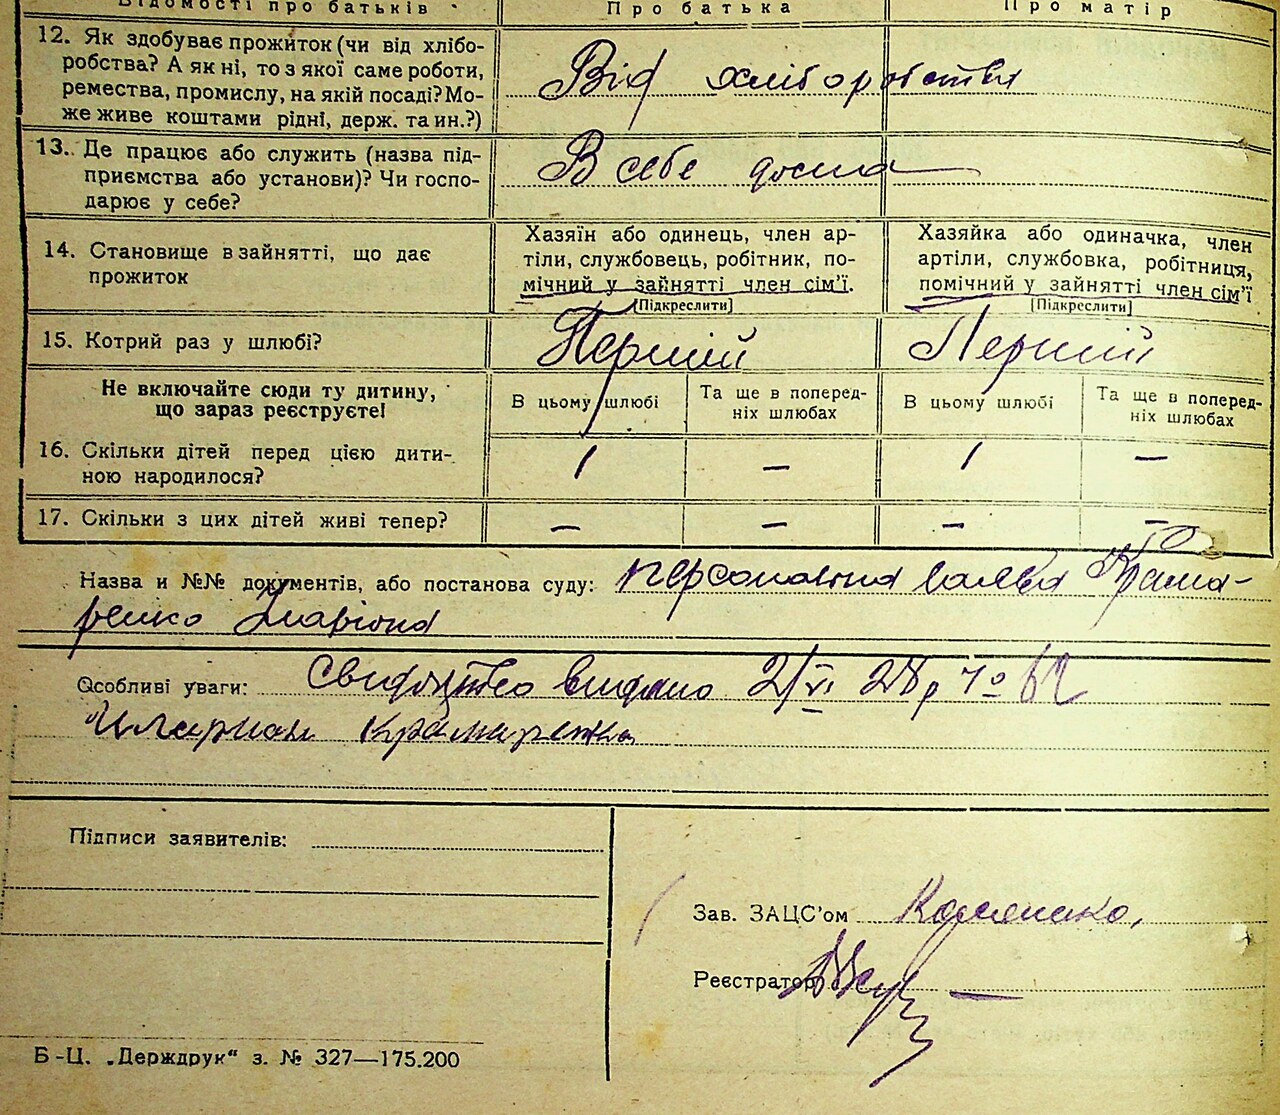 Відомості про батьків
Про батька
Про матір
12. Як здобуває прожиток (чи від хлібо-
робства? А як ні, то з якої саме роботи,
ремества, промислу, на якій посаді? Мо-
же живе коштами рідні, держ. та ин.?)
Від хліборобства
13. Де працює або служить (назва під-
приємства або установи)? Чи госпо-
дарює у себе?
В себе дома
14. Становище в зайнятті, що дає
прожиток
Хазяїн або одинець, член ар-
тіли, службовець, робітник, по-
мічний у зайнятті член сім'ї.
[Підкреслити]
Хазяйка або одиначка, член
артіли, службовка, робітниця,
помічний у зайнятті член сім'ї
[Підкреслити]
15. Котрий раз у шлюбі?
Перший
Перший
Не включайте сюди ту дитину,
що зараз реєструєте!
В цьому шлюбі
Та ще в поперед-
ніх шлюбах
В цьому шлюбі
Та ще в поперед-
ніх шлюбах
16. Скільки дітей перед цією дити-
ною народилося?
1 — 1 —
17. Скільки з цих дітей живі тепер?
— — — —
Назва и №№ документів, або постанова суду: персональна заява Крама-
ренко
Особливі уваги: Свидоцтво видано 2/VI 28р
Крамаренка
Підписи заявителів:
Зав. ЗАЦС'ом
Реєстратор
Б-Ц. „Держдрук“ з. № 327—175.200